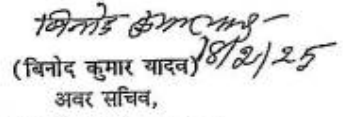 बिनोद कुमार यादव
18/2/25
(बिनोद कुमार यादव)
अवर सचिव,